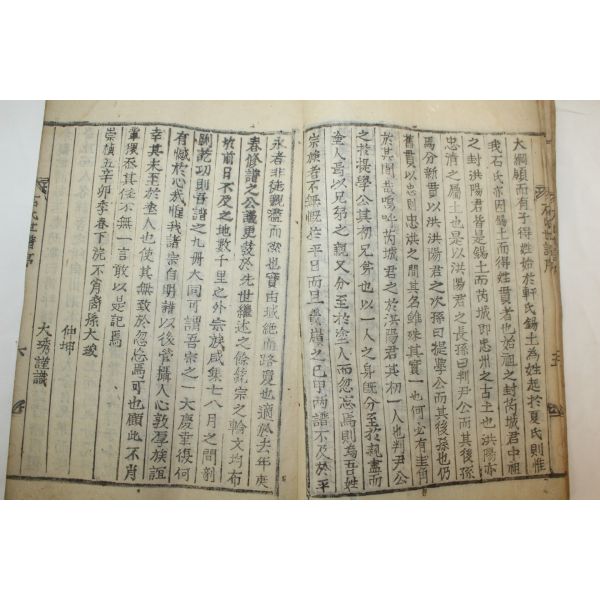 大綱領而有子得姓始於軒氏錫土為姓起於夏氏則惟
我石氏亦因錫土而得姓貫者也始祖之封芮城君中祖
之封洪陽君皆是錫土而芮城即忠州之古土也洪陽亦
忠清之屬土也是以洪陽君之長孫曰判尹公而其後孫也仍
為分新貫以洪洪陽君之次孫曰提學公而其後孫也仍
舊貫以忠則忠洪之其名雖殊其實一也何必有
於其間哉嗚呼芮城君之於洪陽君其初一人也判尹公
之於提學公其初兄弟也以一人之身既分至於親盡而
塗人焉以兄弟之親又分至於塗人而忽忘焉則為吾石姓
宗族者不無慨於平日而且一舊之已甲兩譜不及於平
永者非徒觀溢而然也實由域絕而路廢也適於去年
春修譜之公議更發於先世繼述之餘宗之輪文均布
於前日不及之地數千里之外宗族咸集七八月之間剞
劂訖功則吾譜之九冊大同可謂吾宗之一大慶事復何
有憾於心哉惟我諸宗自明譜以後管攝人心敦厚族誼
幸其未至於塗人也使其無致於忽忘焉可也顧此不肖
輩猥忝其任不無一言敢以是記焉
崇禎五辛卯季春下浣不肖裔孫大璇
仲坤
大琇謹識